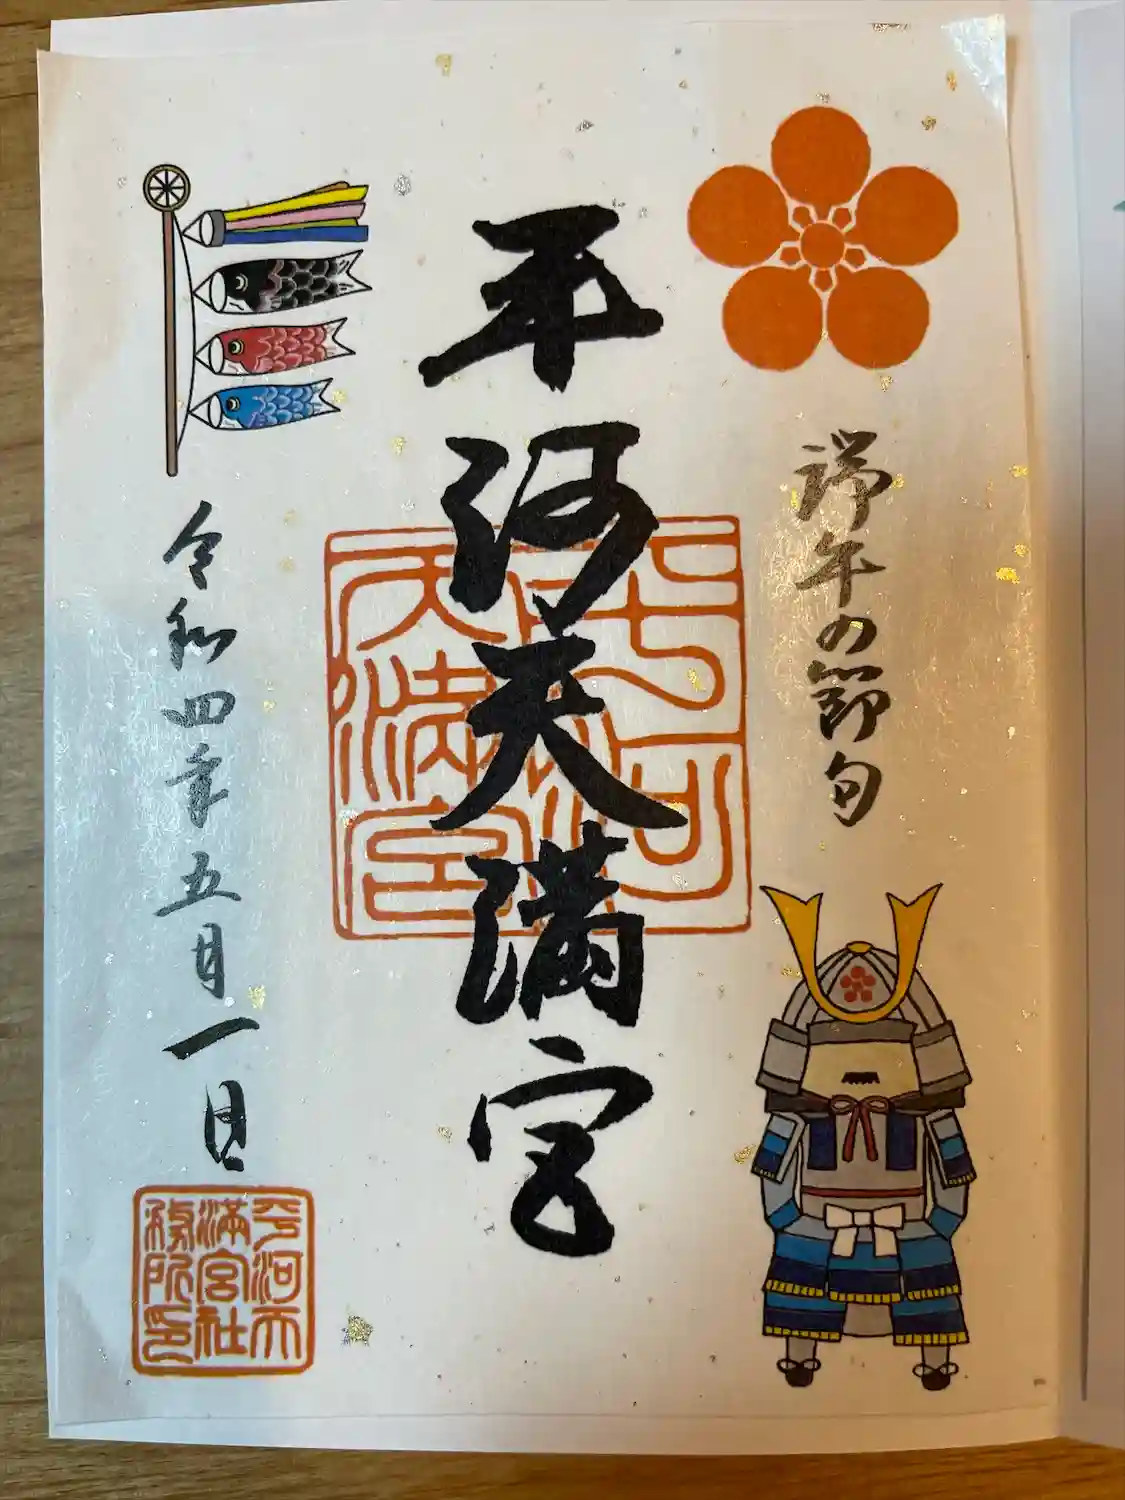 端午の節句
平河天満宮
令和四年五月一日
平河天
満宮社
務所印